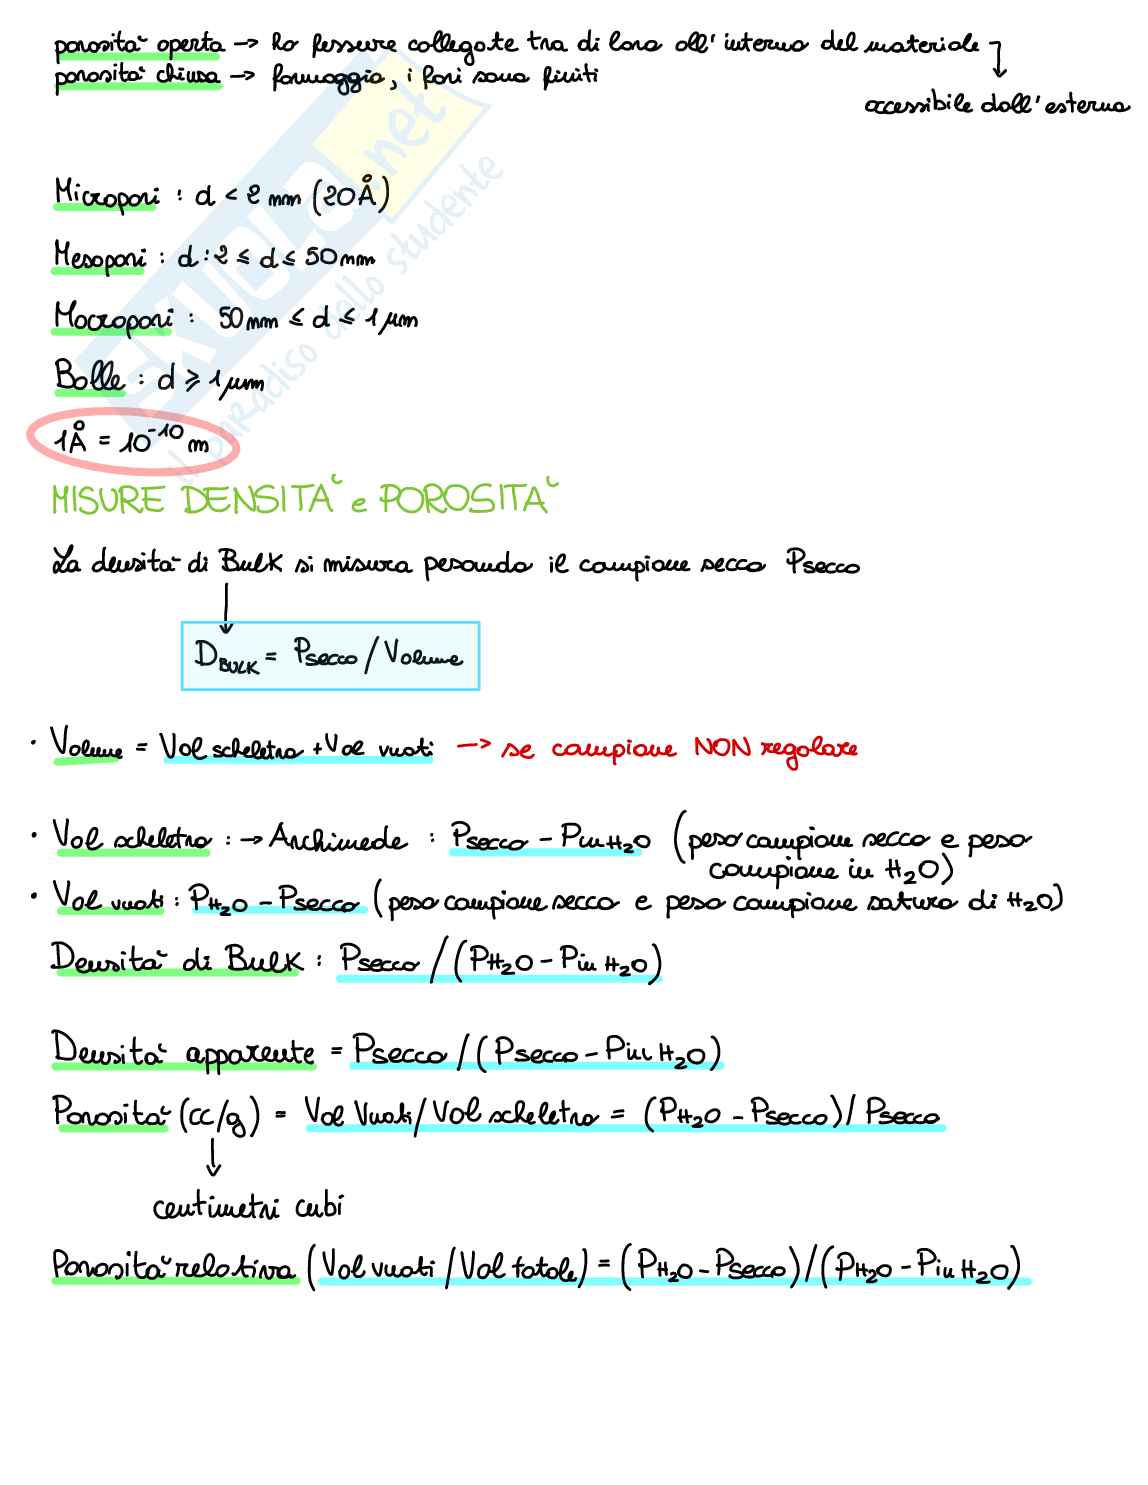 porosità aperta → ho fessure collegate tra di loro all'interno del materiale
↓
porosità chiusa → formaggio, i fori sono finiti
accessibile dall'esterno
Micropori : d < 2 nm (20Å)
Mesopori : d : 2 ≤ d ≤ 50 nm
Macropori : 50 nm ≤ d ≤ 1 μm
Bolle : d ⩾ 1 μm
1Å = 10⁻¹⁰ m
MISURE DENSITÀ e POROSITÀ
La densità di Bulk si misura pesando il campione secco Psecco
↓
D_BULK = Psecco / Volume
· Volume = Vol scheletro + Vol vuoti → se campione NON regolare
· Vol scheletro : → Archimede : Psecco - Pin H₂O (peso campione secco e peso
campione in H₂O)
· Vol vuoti : PH₂O - Psecco (peso campione secco e peso campione saturo di H₂O)
Densità di Bulk : Psecco / (PH₂O - Pin H₂O)
Densità apparente = Psecco / (Psecco - Pin H₂O)
Porosità (cc/g) = Vol Vuoti / Vol scheletro = (PH₂O - Psecco) / Psecco
↓
centimetri cubi
Porosità relativa (Vol vuoti / Vol totale) = (PH₂O - Psecco) / (PH₂O - Pin H₂O)
SKUOLA.net
il paradiso dello studente